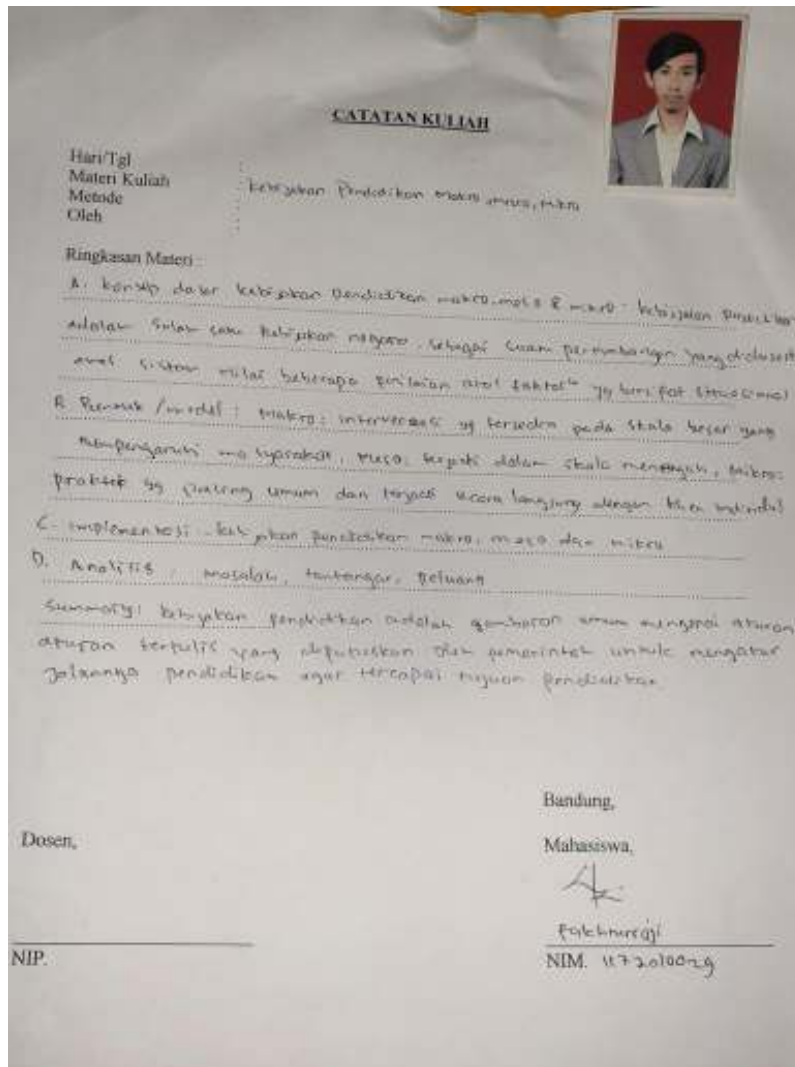 CATATAN KULIAH
Hari/Tgl :
Materi Kuliah : Kebijakan Pendidikan Makro, Meso, Mikro
Metode :
Oleh :
Ringkasan Materi :
A. konsep dasar kebijakan Pendidikan makro, meso & mikro : kebijakan
adalah salah satu kebijakan negara, sebagai suatu pertimbangan yang didasari
sistem nilai beberapa penilaian faktor" yg bersifat situasional
B. /model : Makro : intervensi yg tersedia pada skala besar yang
mempengaruhi masyarakat, meso : terjadi dalam skala menengah, mikro :
praktek yg paling umum dan terjadi secara langsung dengan individu
C. implementasi kebijakan pendidikan makro, meso dan mikro
D. Analisis : masalah, tantangan, peluang
Summary : kebijakan pendidikan adalah gambaran umum mengenai aturan
aturan tertulis yang diputuskan oleh pemerintah untuk mengatur
jalannya pendidikan agar tercapai tujuan pendidikan
Bandung,
Dosen,
Mahasiswa,
Fakhruroji
NIP.
NIM. 1172010029